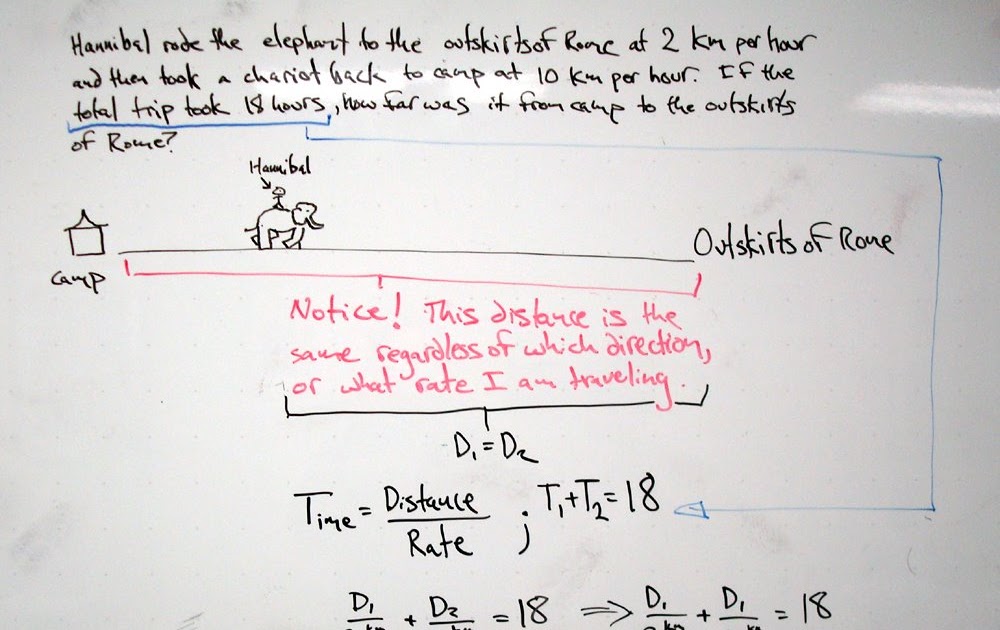 Hannibal rode the elephant to the outskirts of Rome at 2 km per hour
and then took a chariot back to camp at 10 km per hour. If the
total trip took 18 hours, how far was it from camp to the outskirts
of Rome?
Hannibal
Outskirts of Rome
camp
Notice! This distance is the
same regardless of which direction,
or what rate I am traveling.
D₁=D₂
Time = Distance/Rate ; T₁+T₂=18
D₁/ + D₂/ = 18 ⟹ D₁/ + D₁/ = 18